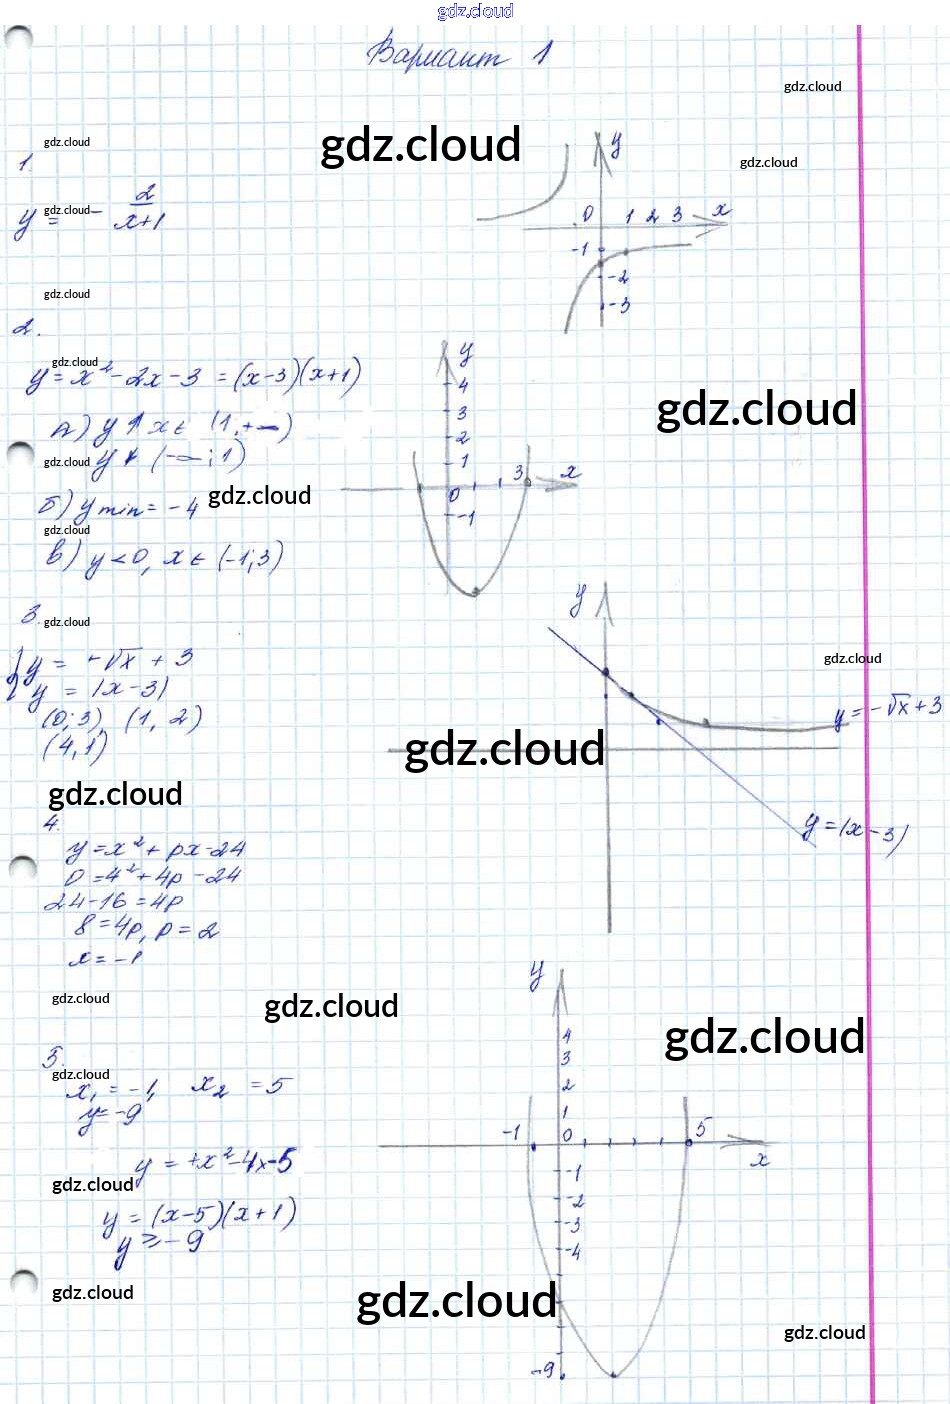 gdz.cloud
Вариант 1
gdz.cloud
gdz.cloud
gdz.cloud
gdz.cloud
1.
y = - 2/(x+1)
gdz.cloud
y
0 1 2 3 x
-1
-2
-3
gdz.cloud
2.
gdz.cloud
y = x² - 2x - 3 = (x-3)(x+1)
а) y ↑ x ∈ (1, +∞)
gdz.cloud
y ↓ (-∞; 1)
gdz.cloud
б) y min = -4
gdz.cloud
в) y < 0, x ∈ (-1; 3)
y
4
3
2
1
3 x
0
-1
gdz.cloud
3.
gdz.cloud
{ y = -√x + 3
y = |x-3|
(0; 3), (1, 2)
(4, 1)
y
gdz.cloud
y = -√x + 3
gdz.cloud
y = |x-3|
gdz.cloud
4.
y = x² + px - 24
0 = 4² + 4p - 24
24 - 16 = 4p
8 = 4p, p = 2
x = -1
gdz.cloud
gdz.cloud
gdz.cloud
5.
gdz.cloud
x₁ = -1, x₂ = 5
y = -9
y = +x² - 4x - 5
gdz.cloud
y = (x-5)(x+1)
y ≥ -9
gdz.cloud
y
4
3
2
1
-1 0 5
x
-1
-2
-3
-4
-9
gdz.cloud
gdz.cloud